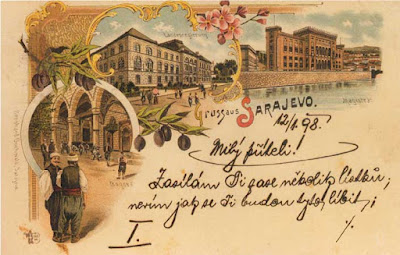 Gruss aus SARAJEVO.
12/1. 98.
Milý příteli!
Zasílám Ti zase několik lístků;
nevím jak se Ti budou líbit;
I.